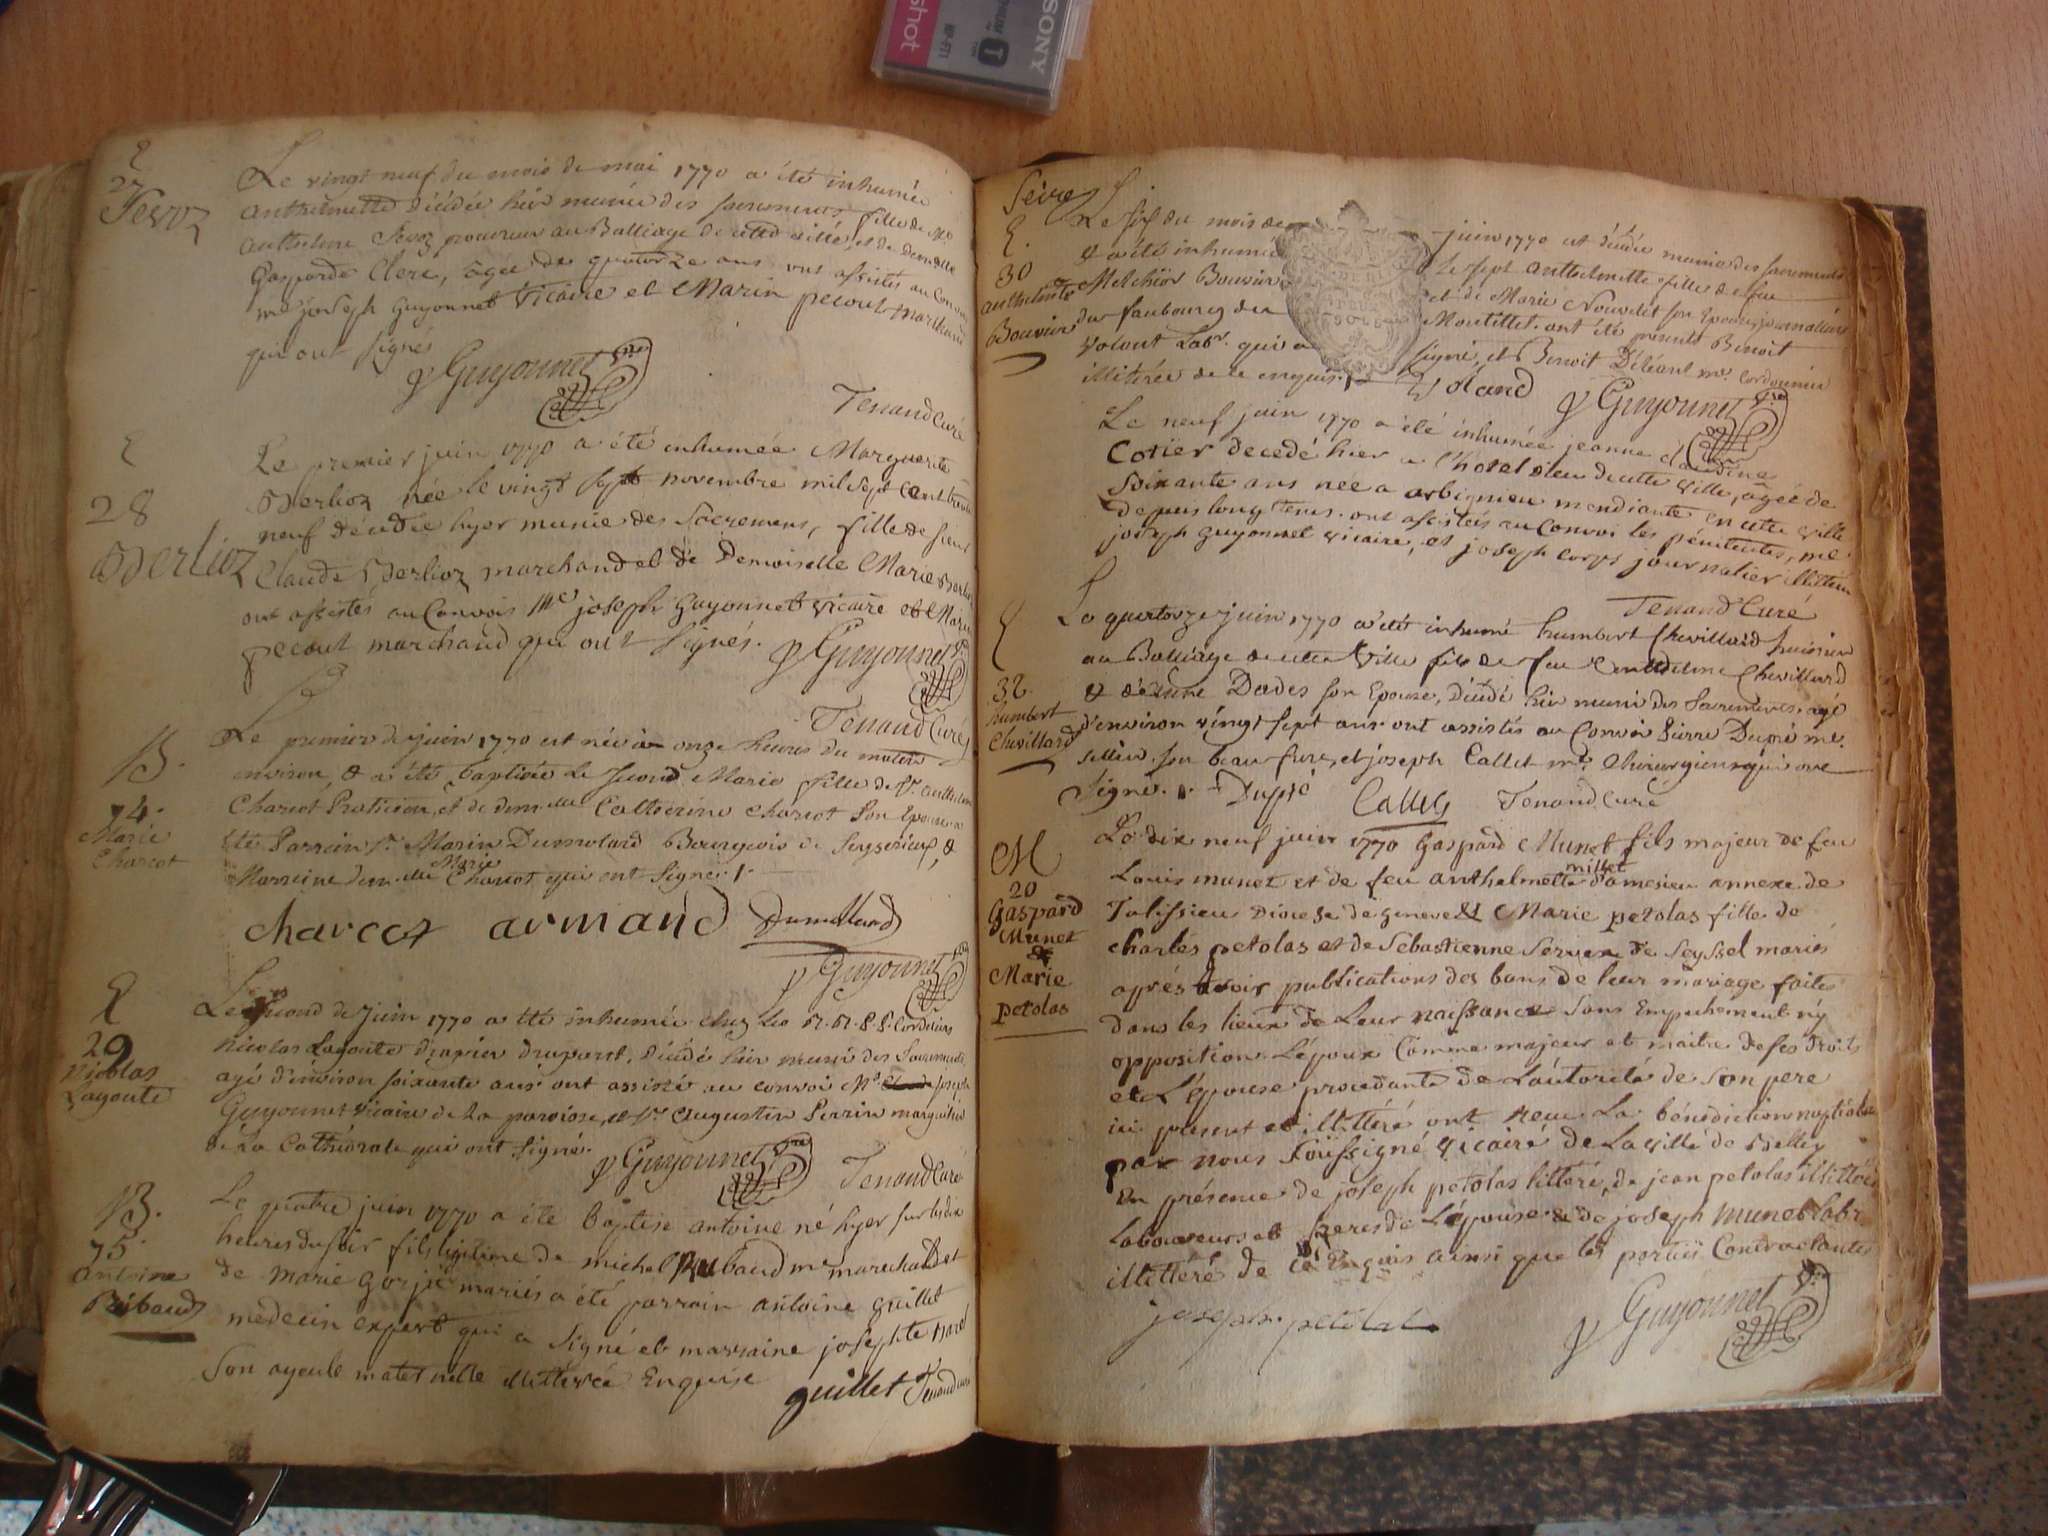 SONY
shot
MP-FT1
T
E
27
Sevoz
Le vingt neuf du mois de mai 1770 a été inhumée
anthelmette décédée hier munie des sacrements fille de Me
anthelme Sevoz procureur au Balliage de cette ville, et de Demlle
Gasparde Clerc, agée de quatorze ans ont assistés au Convoi
me joseph Guyonnet Vicaire et Marin pecout marchand
qui ont signés
Guyonnet vre
Tenand Curé
E
28
Berlioz
Le premier juin 1770 a été inhumée Marguerite
Berlioz née le vingt sept novembre mil sept cent trente
neuf décédée hyer munie des Sacremens, fille de sieur
Claude Berlioz marchand et de Demoiselle Marie
ont assistés au Convois Me joseph Guyonnet vicaire et Marin
pecout marchand qui ont signés.
Guyonnet vre
Tenand Curé
B.
74.
Marie
Charcot
Le premier de juin 1770 est née à onze heures du matin
environ, & a été baptisée Le second Marie fille de Sr. anthelme
Charcot Praticien, et de demlle Catherine Charcot son Epouse a
été Parrain Sr. Marin Dumolard Bourgeois de Seyserieux, &
Marraine demlle Marie Charcot qui ont signé.
charcot armand Dumollard
Guyonnet vre
E
29
Nicolas
Lagoute
Le second de juin 1770 a été inhumé chez Les R.R.P.P. Cordeliers
Nicolas Lagoute drapier drapant, décédé hier muni des Sacrements
agé d'environ soixante ans ont assisté au convoi Me joseph
Guyonnet vicaire de la paroisse, et Sr. augustin Perrin marguillier
de La Cathédrale qui ont signé.
Guyonnet vre
Tenand Curé
B.
75
antoine
Ribaud
Le quatre juin 1770 a été baptisé antoine né hyer sur les dix
heures du soir fils légitime de michel Ribaud me marechal et
de marie Gorju mariés a été parrain antoine guillet
medecin expert qui a signé et marraine josephte
son ayeule maternelle illiterée Enquise
guillet Tenand curé
E.
30
anthelmette
Bouvier
Le six du mois de juin 1770 est décédée munie des sacrements
& a été inhumée le sept anthelmette fille de feu
Melchior Bouvier et de Marie Nouvelet son Epouse journaliere
du faubourg du Montillet. ont été presents Benoit
Volant Labr. qui a signé, et Benoit Déléant me. Cordonnier
illiterée de ce enquis.
Voland
Guyonnet vre
Le neuf juin 1770 a été inhumée jeanne claudine
Cotier decedé hier a l'hotel dieu de cette ville, agée de
soixante ans née a arbignieu mendiante en cette ville
depuis long tems. ont assistés au Convoi les pénitentes, me
joseph guyonnet vicaire, et joseph corps journalier illitéré
Tenand Curé
E
32
humbert
Chevillard
Le quatorze juin 1770 a été inhumé humbert Chevillard huissier
au Balliage de cette Ville fils de feu anthelme Chevillard
& Dades son Epouse, Décédé hier muni des Sacrements. agé
d'environ vingt sept ans. ont assistés au Convoi Pierre Dupré me.
sellier son beau frere, et joseph Callet me. Chirurgien qui ont
signé.
Dupré Callet Tenand Curé
M
20
Gaspard
Munet
&
Marie
petolas
Le dix neuf juin 1770 Gaspard Munet fils majeur de feu
Louis munet et de feu anthelmette millet d'amesieu annexe de
Talissieu Diocese de geneve & Marie petolas fille de
charles petolas et de Sebastienne Servex de Seyssel mariés
aprés avoir publications des bans de leur mariage faites
dans les lieux de Leur naissance sans Empechement ny
opposition L'époux comme majeur et maitre de ses droits
et L'épouse procedante de L'autorité de son pere
ici present et illittéré ont reçu La bénédiction nuptiale
par nous soussigné vicaire de La ville de Belley
en présence de joseph petolas littéré, de jean petolas illittéré
laboureurs et freres de L'épouse & de joseph munet labr.
illittéré de ce Enquis ainsi que les parties Contractantes
joseph petolat
Guyonnet vre